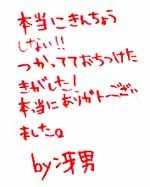 本当にきんちょう
しない!!
つかってておちつけた
きがした!
本当にありがトーござい
ました。
by 冴男